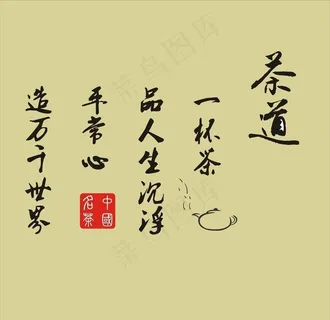 茶道
一杯茶
品人生沉浮
平常心
造万千世界
中國
名茶
菜鸟图库